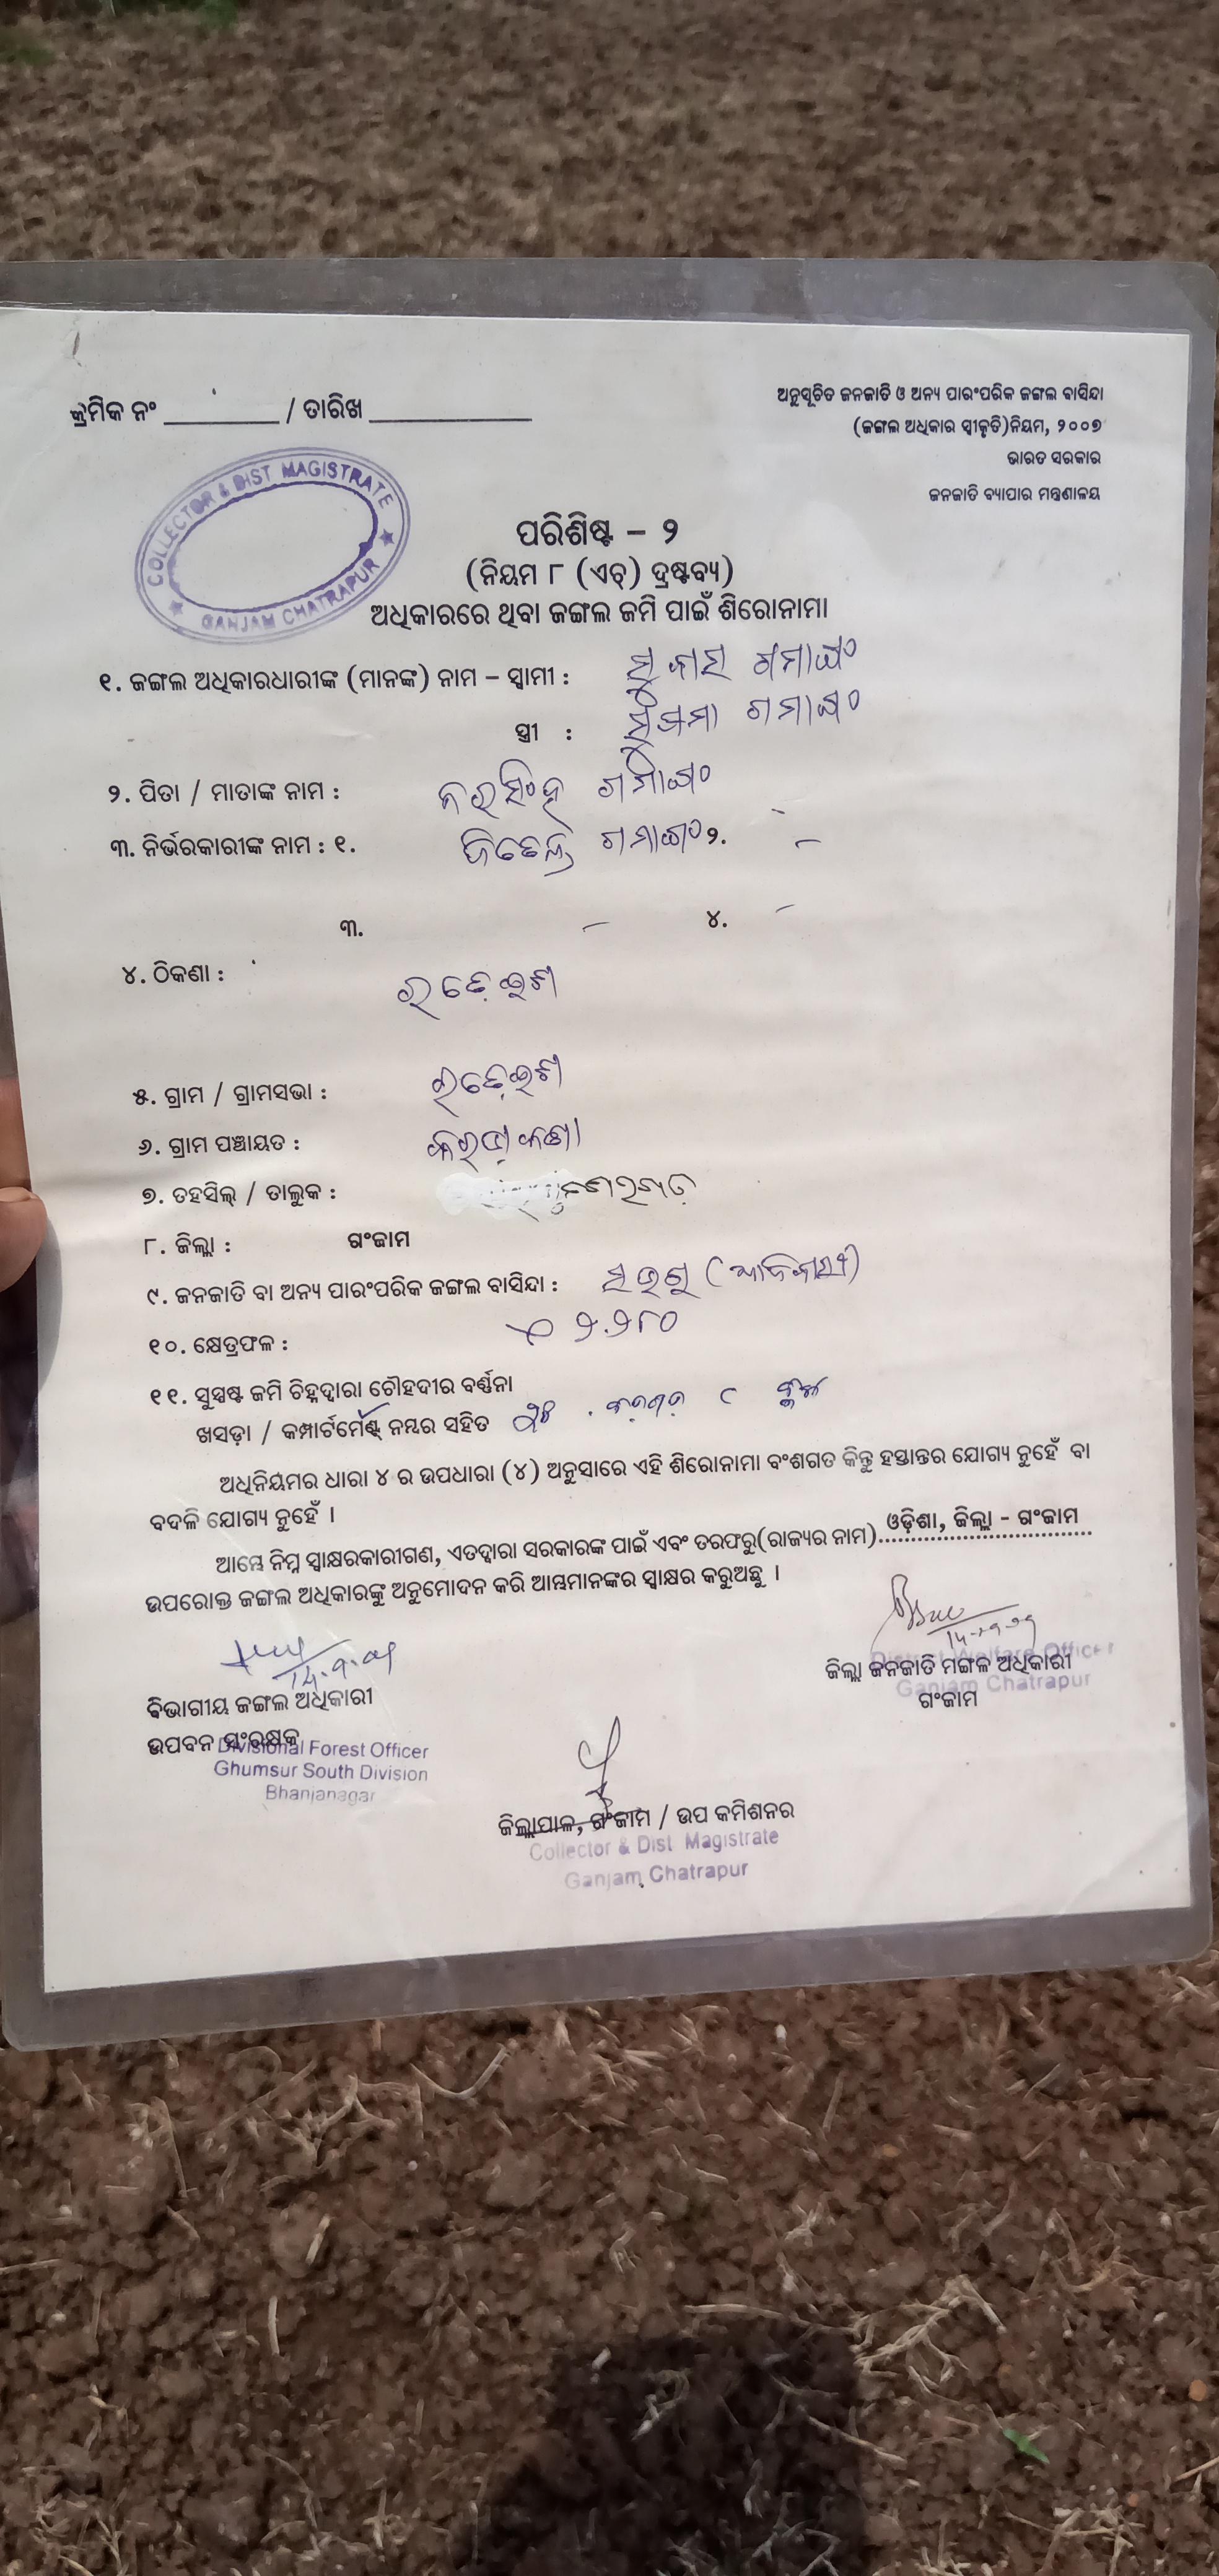 କ୍ରମିକ ନଂ ________ / ତାରିଖ ____________
ଅନୁସୂଚିତ ଜନଜାତି ଓ ଅନ୍ୟ ପାରଂପରିକ ଜଙ୍ଗଲ ବାସିନ୍ଦା
(ଜଙ୍ଗଲ ଅଧିକାର ସ୍ୱୀକୃତି)ନିୟମ, ୨୦୦୭
ଭାରତ ସରକାର
ଜନଜାତି ବ୍ୟାପାର ମନ୍ତ୍ରଣାଳୟ
COLLECTOR & DIST MAGISTRATE
GANJAM CHATRAPUR
ପରିଶିଷ୍ଟ – ୨
(ନିୟମ ୮ (ଏଚ୍) ଦ୍ରଷ୍ଟବ୍ୟ)
ଅଧିକାରରେ ଥିବା ଜଙ୍ଗଲ ଜମି ପାଇଁ ଶିରୋନାମା
୧. ଜଙ୍ଗଲ ଅଧିକାରଧାରୀଙ୍କ (ମାନଙ୍କ) ନାମ – ସ୍ୱାମୀ : ସୁବାସ ଗମାଙ୍ଗ
ସ୍ତ୍ରୀ : ସୁଷମା ଗମାଙ୍ଗ
୨. ପିତା / ମାତାଙ୍କ ନାମ : ନରସିଂହ ଗମାଙ୍ଗ
୩. ନିର୍ଭରକାରୀଙ୍କ ନାମ : ୧. ଜିତେନ୍ଦ୍ର ଗମାଙ୍ଗ ୨. –
୩. – ୪. –
୪. ଠିକଣା :
୫. ଗ୍ରାମ / ଗ୍ରାମସଭା :
୬. ଗ୍ରାମ ପଞ୍ଚାୟତ :
୭. ତହସିଲ୍ / ତାଲୁକ :
୮. ଜିଲ୍ଲା : ଗଂଜାମ
୯. ଜନଜାତି ବା ଅନ୍ୟ ପାରଂପରିକ ଜଙ୍ଗଲ ବାସିନ୍ଦା : (ଆଦିବାସୀ)
୧୦. କ୍ଷେତ୍ରଫଳ : ୨.୨୮୦
୧୧. ସୁସ୍ପଷ୍ଟ ଜମି ଚିହ୍ନଦ୍ୱାରା ଚୌହଦୀର ବର୍ଣ୍ଣନା
ଖସଡ଼ା / କମ୍ପାର୍ଟମେଣ୍ଟ୍ ନମ୍ବର ସହିତ
ଅଧିନିୟମର ଧାରା ୪ ର ଉପଧାରା (୪) ଅନୁସାରେ ଏହି ଶିରୋନାମା ବଂଶଗତ କିନ୍ତୁ ହସ୍ତାନ୍ତର ଯୋଗ୍ୟ ନୁହେଁ ବା
ବଦଳି ଯୋଗ୍ୟ ନୁହେଁ ।
ଆମ୍ଭେ ନିମ୍ନ ସ୍ୱାକ୍ଷରକାରୀଗଣ, ଏତଦ୍ୱାରା ସରକାରଙ୍କ ପାଇଁ ଏବଂ ତରଫରୁ(ରାଜ୍ୟର ନାମ) ଓଡ଼ିଶା, ଜିଲ୍ଲା - ଗଂଜାମ
ଉପରୋକ୍ତ ଜଙ୍ଗଲ ଅଧିକାରଙ୍କୁ ଅନୁମୋଦନ କରି ଆମ୍ଭମାନଙ୍କର ସ୍ୱାକ୍ଷର କରୁଅଛୁ ।
ବିଭାଗୀୟ ଜଙ୍ଗଲ ଅଧିକାରୀ
ଉପବନ ସଂରକ୍ଷକ
Divisional Forest Officer
Ghumsur South Division
Bhanjanagar
District Welfare Officer
ଜିଲ୍ଲା ଜନଜାତି ମଙ୍ଗଳ ଅଧିକାରୀ
Ganjam Chatrapur
ଗଂଜାମ
ଜିଲ୍ଲାପାଳ, ଗଂଜାମ / ଉପ କମିଶନର
Collector & Dist. Magistrate
Ganjam, Chatrapur